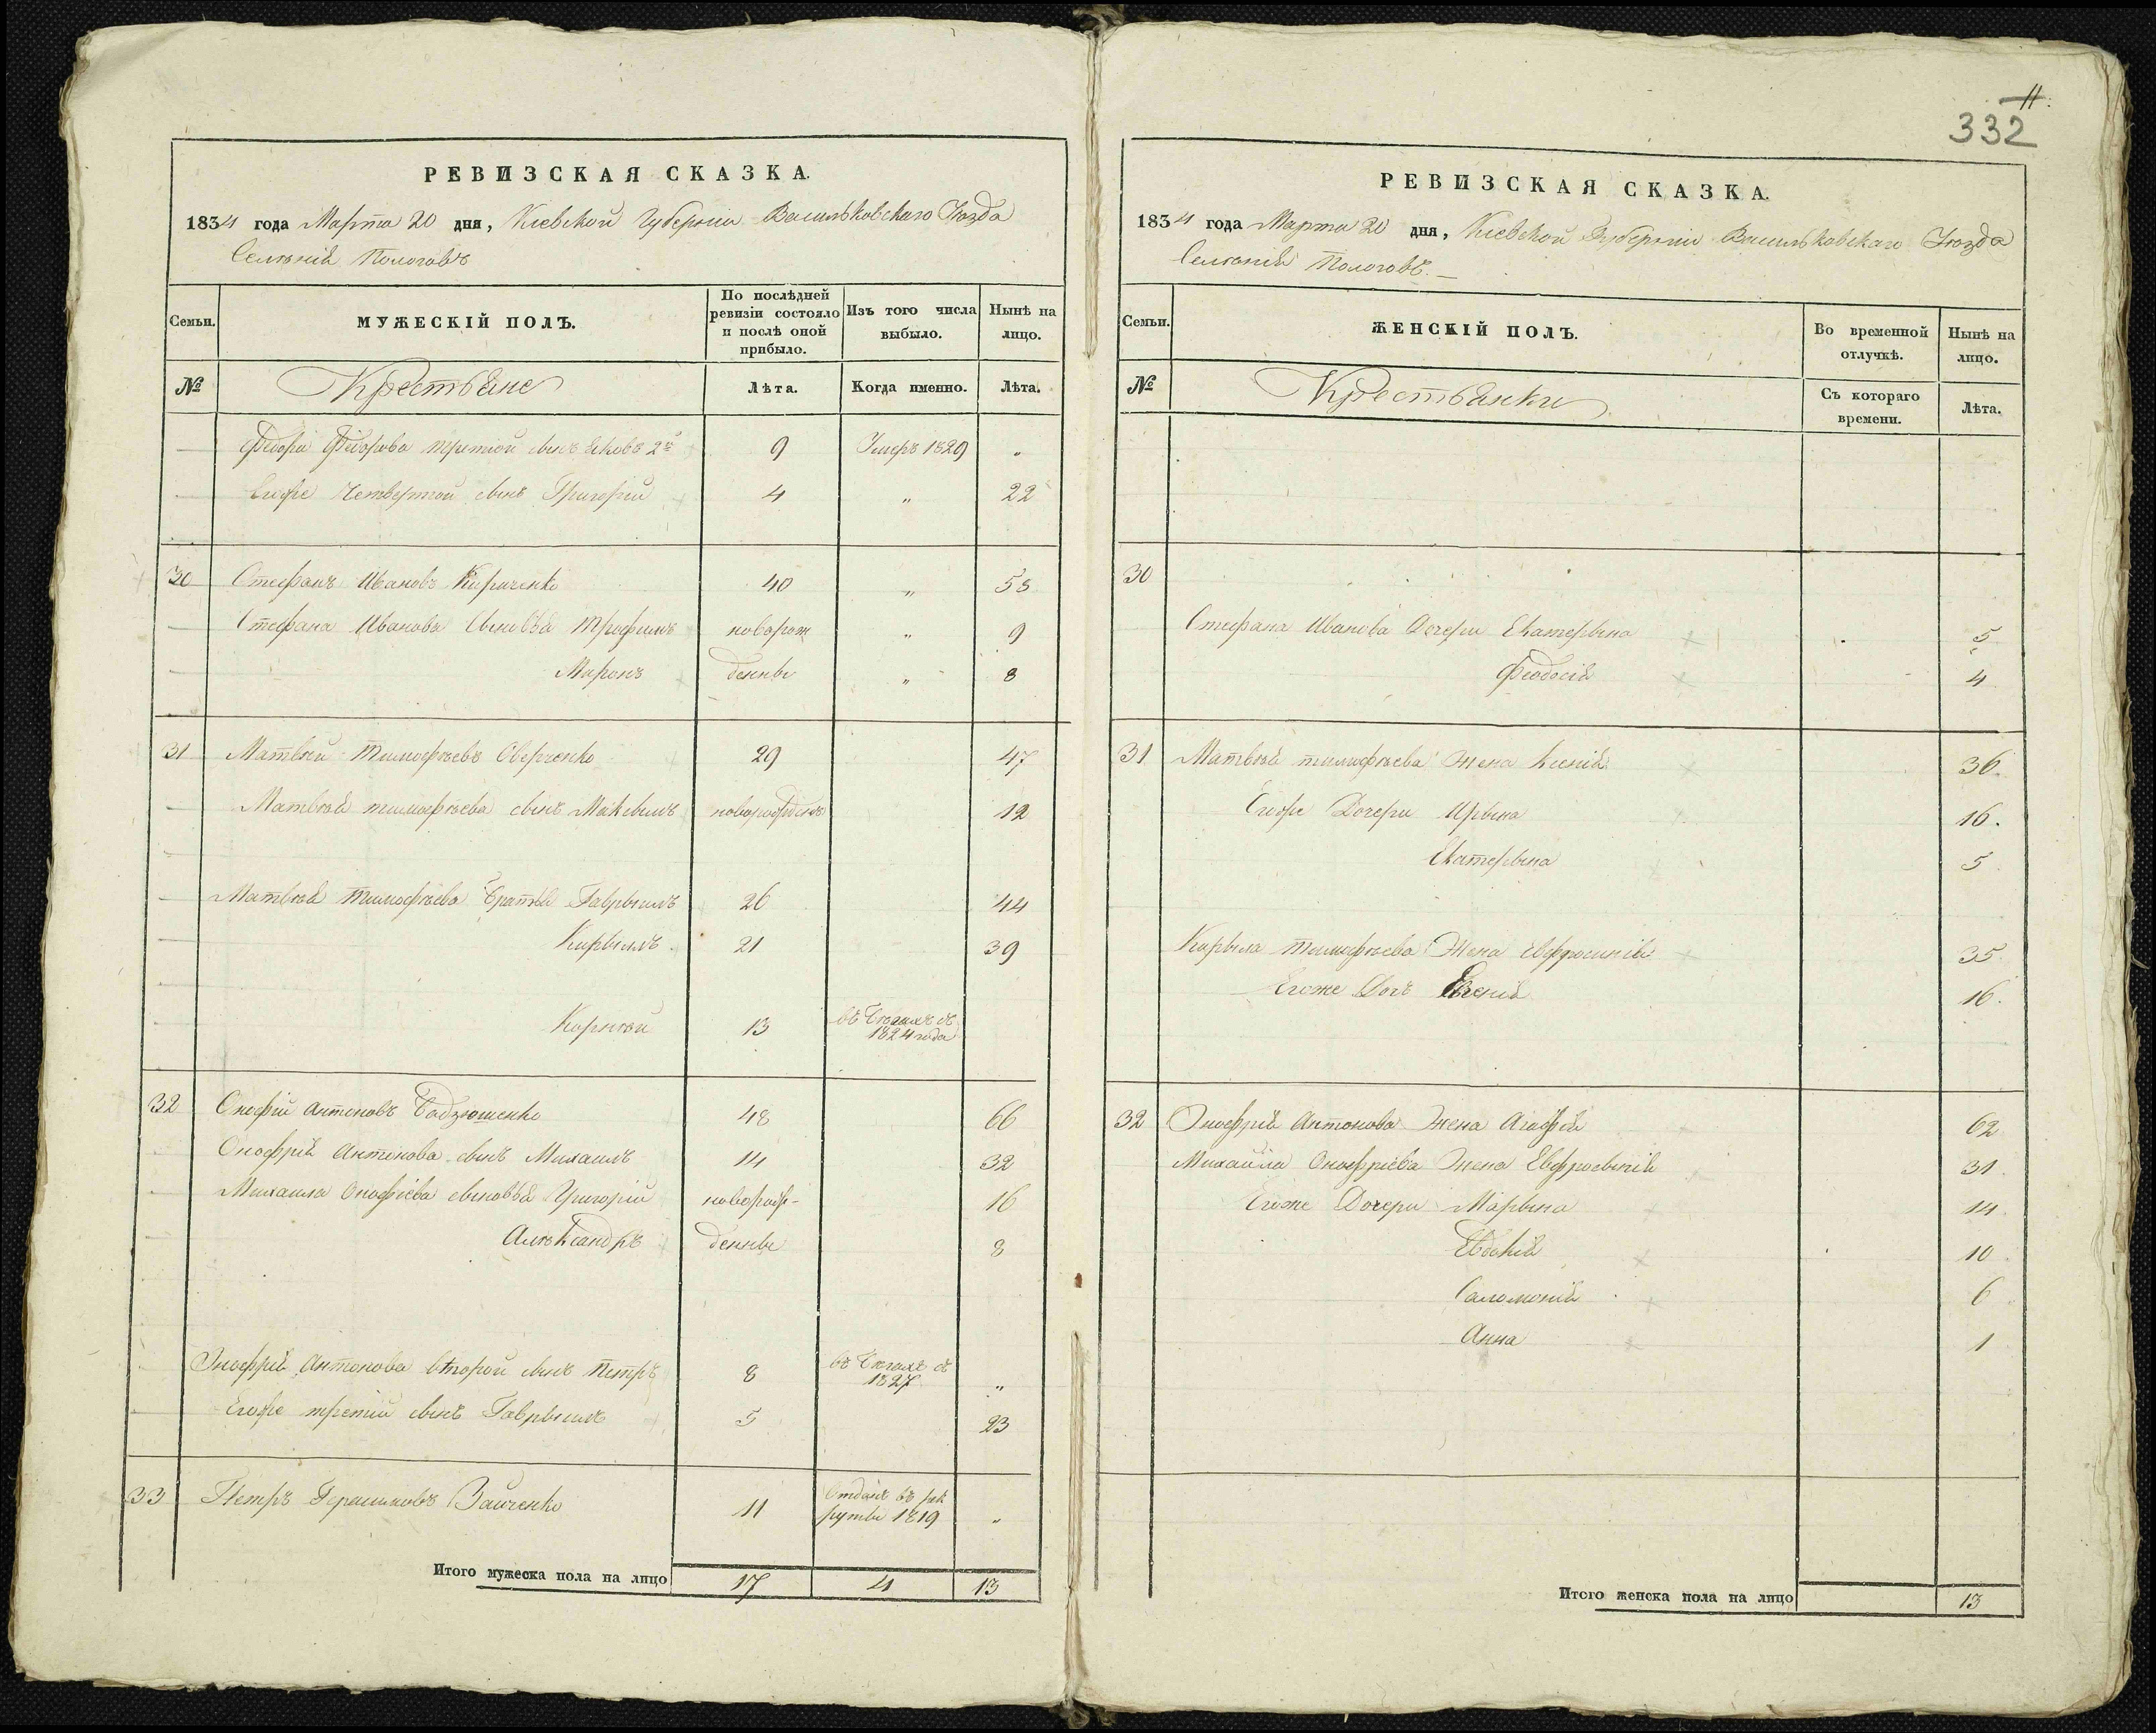 РЕВИЗСКАЯ СКАЗКА.
1834 года Марта 20 дня, Кіевской Губерніи Васильковскаго Уѣзда
Селенія Пологовъ
Семьи. МУЖЕСКІЙ ПОЛЪ. По послѣдней ревизіи состояло и послѣ оной прибыло. Изъ того числа выбыло. Нынѣ на лицо.
№ Крестьяне Лѣта. Когда именно. Лѣта.
Федора Федорова третой сынъ Яковъ 2й 9 Умеръ 1829 „
Егоже Четвертой сынъ Григорій 4 „ 22
30 Стефанъ Ивановъ Кириченко 40 „ 58
Стефана Иванова сыновья Трофимъ новорож „ 9
Миронъ денны „ 8
31 Матвѣй Тимофѣевъ Оверченко 29 47
Матвѣя тимофѣева сынъ Максымъ новорожденъ 12
Матвѣя Тимофѣева братья Гаврыилъ 26 44
Кирылъ 21 39
Корнѣй 13 въ бѣгахъ съ 1824 года
32 Онофрій Антоновъ Бадзюшенко 48 66
Онофрія Антонова сынъ Михаилъ 14 32
Михаила Онофріева сыновья Григорій новорож- 16
Алѣксандръ денны 8
Онофрія Антонова второй сынъ Петръ 8 въ бѣгахъ съ 1827 „
Егоже третій сынъ Гаврыилъ 5 23
33 Петръ Герасимовъ Заиченко 11 Отданъ въ рекруты 1819 „
Итого мужеска пола на лицо 17 4 13
11.
332
РЕВИЗСКАЯ СКАЗКА.
1834 года Марта 20 дня, Кіевской Губерніи Васильковскаго Уѣзда
Селенія Пологовъ.
Семьи. ЖЕНСКІЙ ПОЛЪ. Во временной отлучкѣ. Нынѣ на лицо.
№ Крестьянки Съ котораго времени. Лѣта.
30
Стефана Иванова Дочери Екатерына 5
Феодосія 4
31 Матвѣя тимофѣева Жена Ксенія 36.
Егоже Дочери Ирына 16.
Екатерына 5
Кирыла тимофѣева Жена Евфросинія 35.
Егоже Дочь Евгенія 16.
32 Онофрія Антонова Жена Агафія 62
Михайла Онофріева Жена Евфросынія 31.
Егоже Дочери Марына 14.
Евдокія 10
Саломонія 6
Анна 1
Итого женска пола на лицо 13